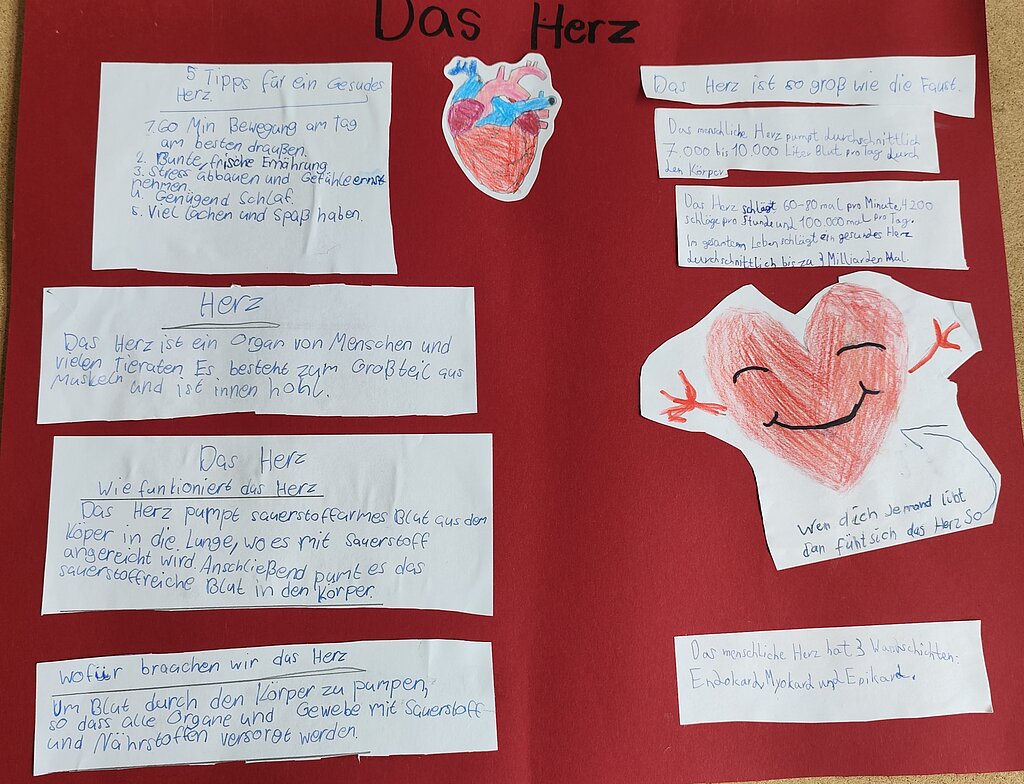 Das Herz
5 Tipps für ein Gesudes
Herz.
1. 60 Min Bewegung am Tag
am besten draußen.
2. Bunte, frische Ernährung
3. Stress abbauen und Gefühle ernst
nehmen.
4. Genügend Schlaf.
5. Viel lachen und Spaß haben.
Herz
Das Herz ist ein Organ von Menschen und
vielen Tieraten. Es besteht zum Großteil aus
Muskeln und ist innen hohl.
Das Herz
Wie funktioniert das Herz
Das Herz pumpt sauerstoffarmes Blut aus dem
Köper in die Lunge, wo es mit Sauerstoff
angereicht wird. Anschließend pumt es das
sauerstoffreiche Blut in den Körper.
Wofür braachen wir das Herz
Um Blut durch den Körper zu pumpen,
so dass alle Organe und Gewebe mit Sauerstoff
und Nährstoffen versorgt werden.
Das Herz ist so groß wie die Faust.
Das menschliche Herz pumpt durchschnittlich
7.000 bis 10.000 Liter Blut pro Tag durch
den Körper.
Das Herz schlägt 60-80 mal pro Minute, 4200
schläge pro Stunde und 100.000 mal pro Tag.
Im gesamtem Leben schlägt ein gesundes Herz
durchschnittlich bis zu 3 Milliarden Mal.
Wen dich Jemand libt
dan fühlt sich das Herz So
Das menschliche Herz hat 3 Wandschichten:
Endokard, Myokard und Epikard.